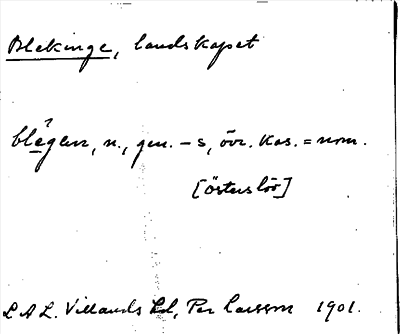 Blekinge, landskapet
blēgen, n., gen. – s, övr. kas. = nom.
[österslöv]
L A L. Villands hd, Per Larsson 1901.